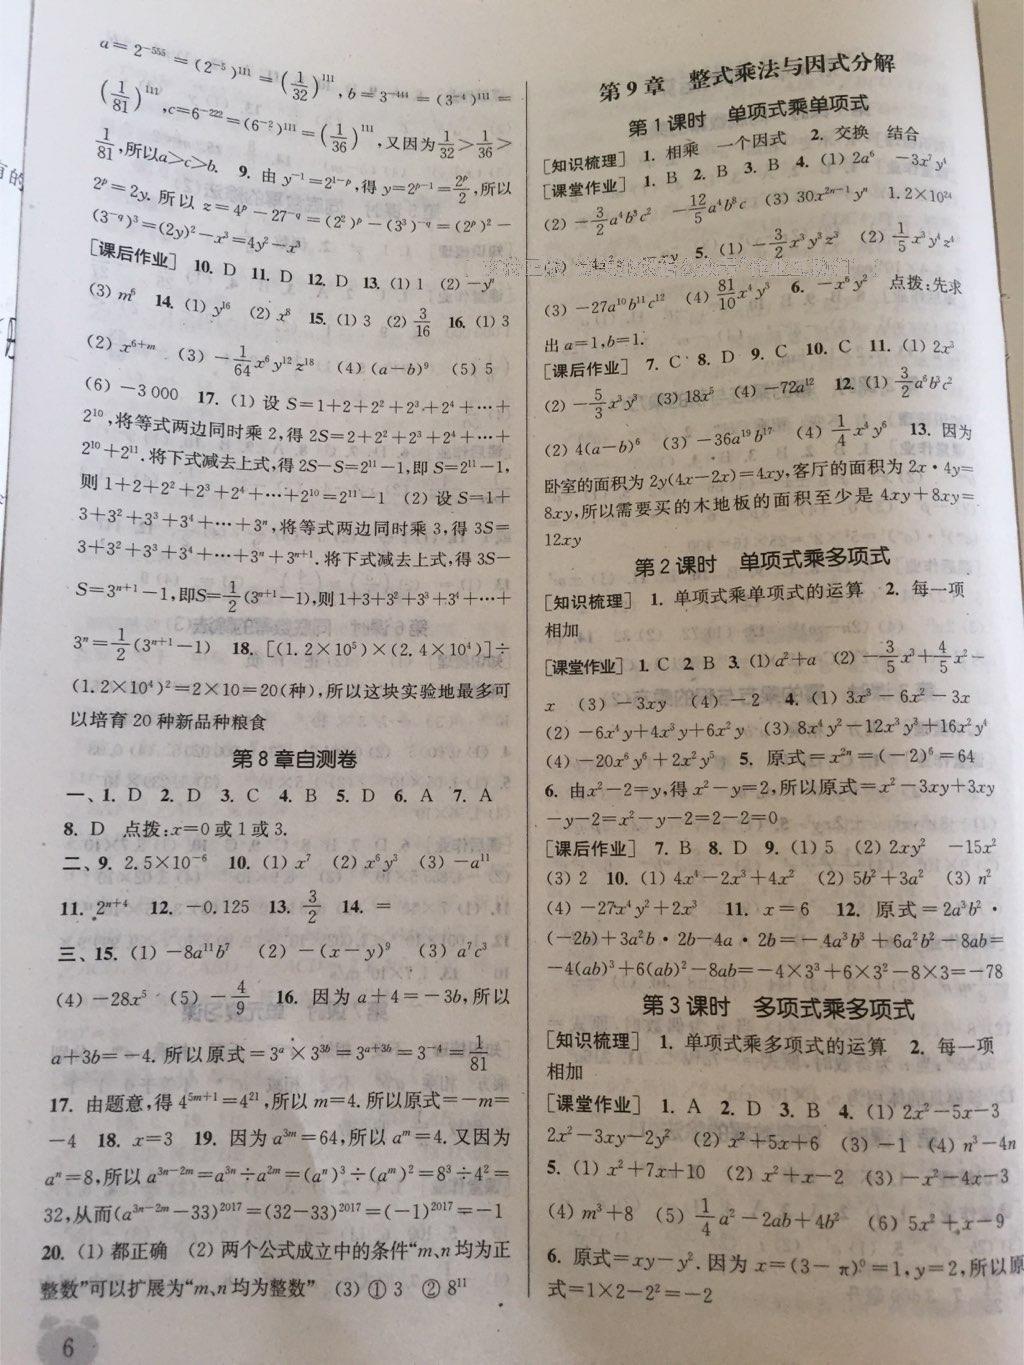 a=2⁻⁵⁵⁵=(2⁻⁵)¹¹¹=(1/32)¹¹¹,b=3⁻⁴⁴⁴=(3⁻⁴)¹¹¹=
(1/81)¹¹¹,c=6⁻²²²=(6⁻²)¹¹¹=(1/36)¹¹¹,又因为1/32>1/36>
1/81,所以a>c>b. 9. 由y⁻¹=2¹⁻ᵖ,得y=2ᵖ⁻¹=2ᵖ/2,所以
2ᵖ=2y. 所以z=4ᵖ-27^{-q}=(2²)ᵖ-(3³)^{-q}=(2ᵖ)²-
(3^{-q})³=(2y)²-x³=4y²-x³
[课后作业] 10. D 11. D 12. D 13. (1) 1 (2) -y⁸
(3) m⁶ 14. (1) y¹⁶ (2) x⁸ 15. (1) 3 (2) 3/16 16. (1) 3
(2) x⁶⁺ᵐ (3) -1/64x⁶y¹²z¹⁸ (4) (a-b)⁹ (5) 5
(6) -3 000 17. (1) 设S=1+2+2²+2³+2⁴+…+
2¹⁰,将等式两边同时乘2,得2S=2+2²+2³+2⁴+…+
2¹⁰+2¹¹. 将下式减去上式,得2S-S=2¹¹-1,即S=2¹¹-1,
则1+2+2²+2³+2⁴+…+2¹⁰=2¹¹-1 (2) 设S=1+
3+3²+3³+3⁴+…+3ⁿ,将等式两边同时乘3,得3S=
3+3²+3³+3⁴+…+3ⁿ+3ⁿ⁺¹. 将下式减去上式,得3S-
S=3ⁿ⁺¹-1,即S=1/2(3ⁿ⁺¹-1),则1+3+3²+3³+3⁴+…+
3ⁿ=1/2(3ⁿ⁺¹-1) 18. [(1.2×10⁵)×(2.4×10⁴)]÷
(1.2×10⁴)²=2×10=20(种),所以这块实验地最多可
以培育20种新品种粮食
第8章自测卷
一、1. D 2. D 3. C 4. B 5. D 6. A 7. A
8. D 点拨:x=0或1或3.
二、9. 2.5×10⁻⁶ 10. (1) x⁷ (2) x⁶y³ (3) -a¹¹
11. 2ⁿ⁺⁴ 12. -0.125 13. 3/2 14. =
三、15. (1) -8a¹¹b⁷ (2) -(x-y)⁹ (3) a⁷c³
(4) -28x⁵ (5) -4/9 16. 因为a+4=-3b,所以
a+3b=-4. 所以原式=3ᵃ×3³ᵇ=3ᵃ⁺³ᵇ=3⁻⁴=1/81
17. 由题意,得4⁵ᵐ⁺¹=4²¹,所以m=4. 所以原式=-m=
-4 18. x=3 19. 因为a³ᵐ=64,所以aᵐ=4. 又因为
aⁿ=8,所以a³ⁿ⁻²ᵐ=a³ⁿ÷a²ᵐ=(aⁿ)³÷(aᵐ)²=8³÷4²=
32,从而(a³ⁿ⁻²ᵐ-33)²⁰¹⁷=(32-33)²⁰¹⁷=(-1)²⁰¹⁷=-1
20. (1) 都正确 (2) 两个公式成立中的条件“m、n均为正
整数”可以扩展为“m、n均为整数” (3) ① 3 ② 8¹¹
6
第9章 整式乘法与因式分解
第1课时 单项式乘单项式
[知识梳理] 1. 相乘 一个因式 2. 交换 结合
[课堂作业] 1. B 2. B 3. B 4. (1) 2a⁶ -3x²y⁴
(2) -3/2a⁴b³c² -12/5a⁴b⁸c (3) 30x²ⁿ⁻¹yⁿ 1.2×10²⁴
-xy 5. (1) -3/2x³y³z³ (2) 1/5x³y⁴z⁴
(3) -27a¹⁰b¹¹c¹² (4) 81/10x⁴y³ 6. -x⁶y² 点拨:先求
出a=1,b=1.
[课后作业] 7. C 8. D 9. C 10. C 11. (1) 2x³
(2) -5/3x³y³ (3) 18x⁵ (4) -72a¹² 12. (1) 3/2a⁶b³c²
(2) 4(a-b)⁶ (3) -36a¹⁹b¹⁷ (4) 1/4x⁴y⁶ 13. 因为
卧室的面积为2y(4x-2x)=4xy,客厅的面积为2x·4y=
8xy,所以需要买的木地板的面积至少是4xy+8xy=
12xy
第2课时 单项式乘多项式
[知识梳理] 1. 单项式乘单项式的运算 2. 每一项
相加
[课堂作业] 1. C 2. B 3. (1) a²+a (2) -3/5x³+4/5x²-
x (3) -3xy (4) -2 4. (1) 3x³-6x²-3x
(2) -6x⁴y+4x³y+6x²y (3) 8x⁴y²-12x³y³+16x²y⁴
(4) -20x⁶y⁶+2x²y⁵ 5. 原式=x²ⁿ=(-2)⁶=64
6. 由x²-2=y,得x²-y=2,所以原式=x²-3xy+3xy
-y-2=x²-y-2=2-2=0
[课后作业] 7. B 8. D 9. (1) 5 (2) 2xy² -15x²
(3) 2 10. (1) 4x⁴-2x³+4x² (2) 5b²+3a² (3) n²
(4) -27x⁴y²+2x³ 11. x=6 12. 原式=2a³b²·
(-2b)+3a²b·2b-4a·2b=-4a³b³+6a²b²-8ab=
-4(ab)³+6(ab)²-8ab=-4×3³+6×3²-8×3=-78
第3课时 多项式乘多项式
[知识梳理] 1. 单项式乘多项式的运算 2. 每一项
相加
[课堂作业] 1. A 2. D 3. B 4. (1) 2x²-5x-3
2x²-3xy-2y² (2) x²+5x+6 (3) -1 (4) n³-4n
5. (1) x²+7x+10 (2) x²+x-2 (3) -x²-4x-3
(4) m³+8 (5) 1/4a²-2ab+4b² (6) 5x²+x-9
6. 原式=xy-y². 因为x=(3-π)⁰=1,y=2,所以原
式=1×2-2²=-2